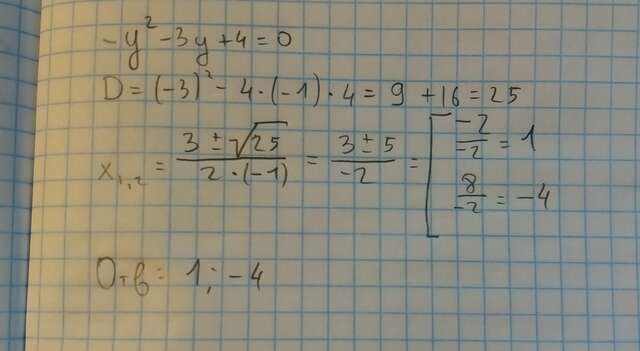 -y² - 3y + 4 = 0
D = (-3)² - 4·(-1)·4 = 9 + 16 = 25
x₁,₂ = (3 ± √25)/(2·(-1)) = (3 ± 5)/(-2) = [ (-2)/(-2) = 1
8/(-2) = -4
Отв: 1; -4